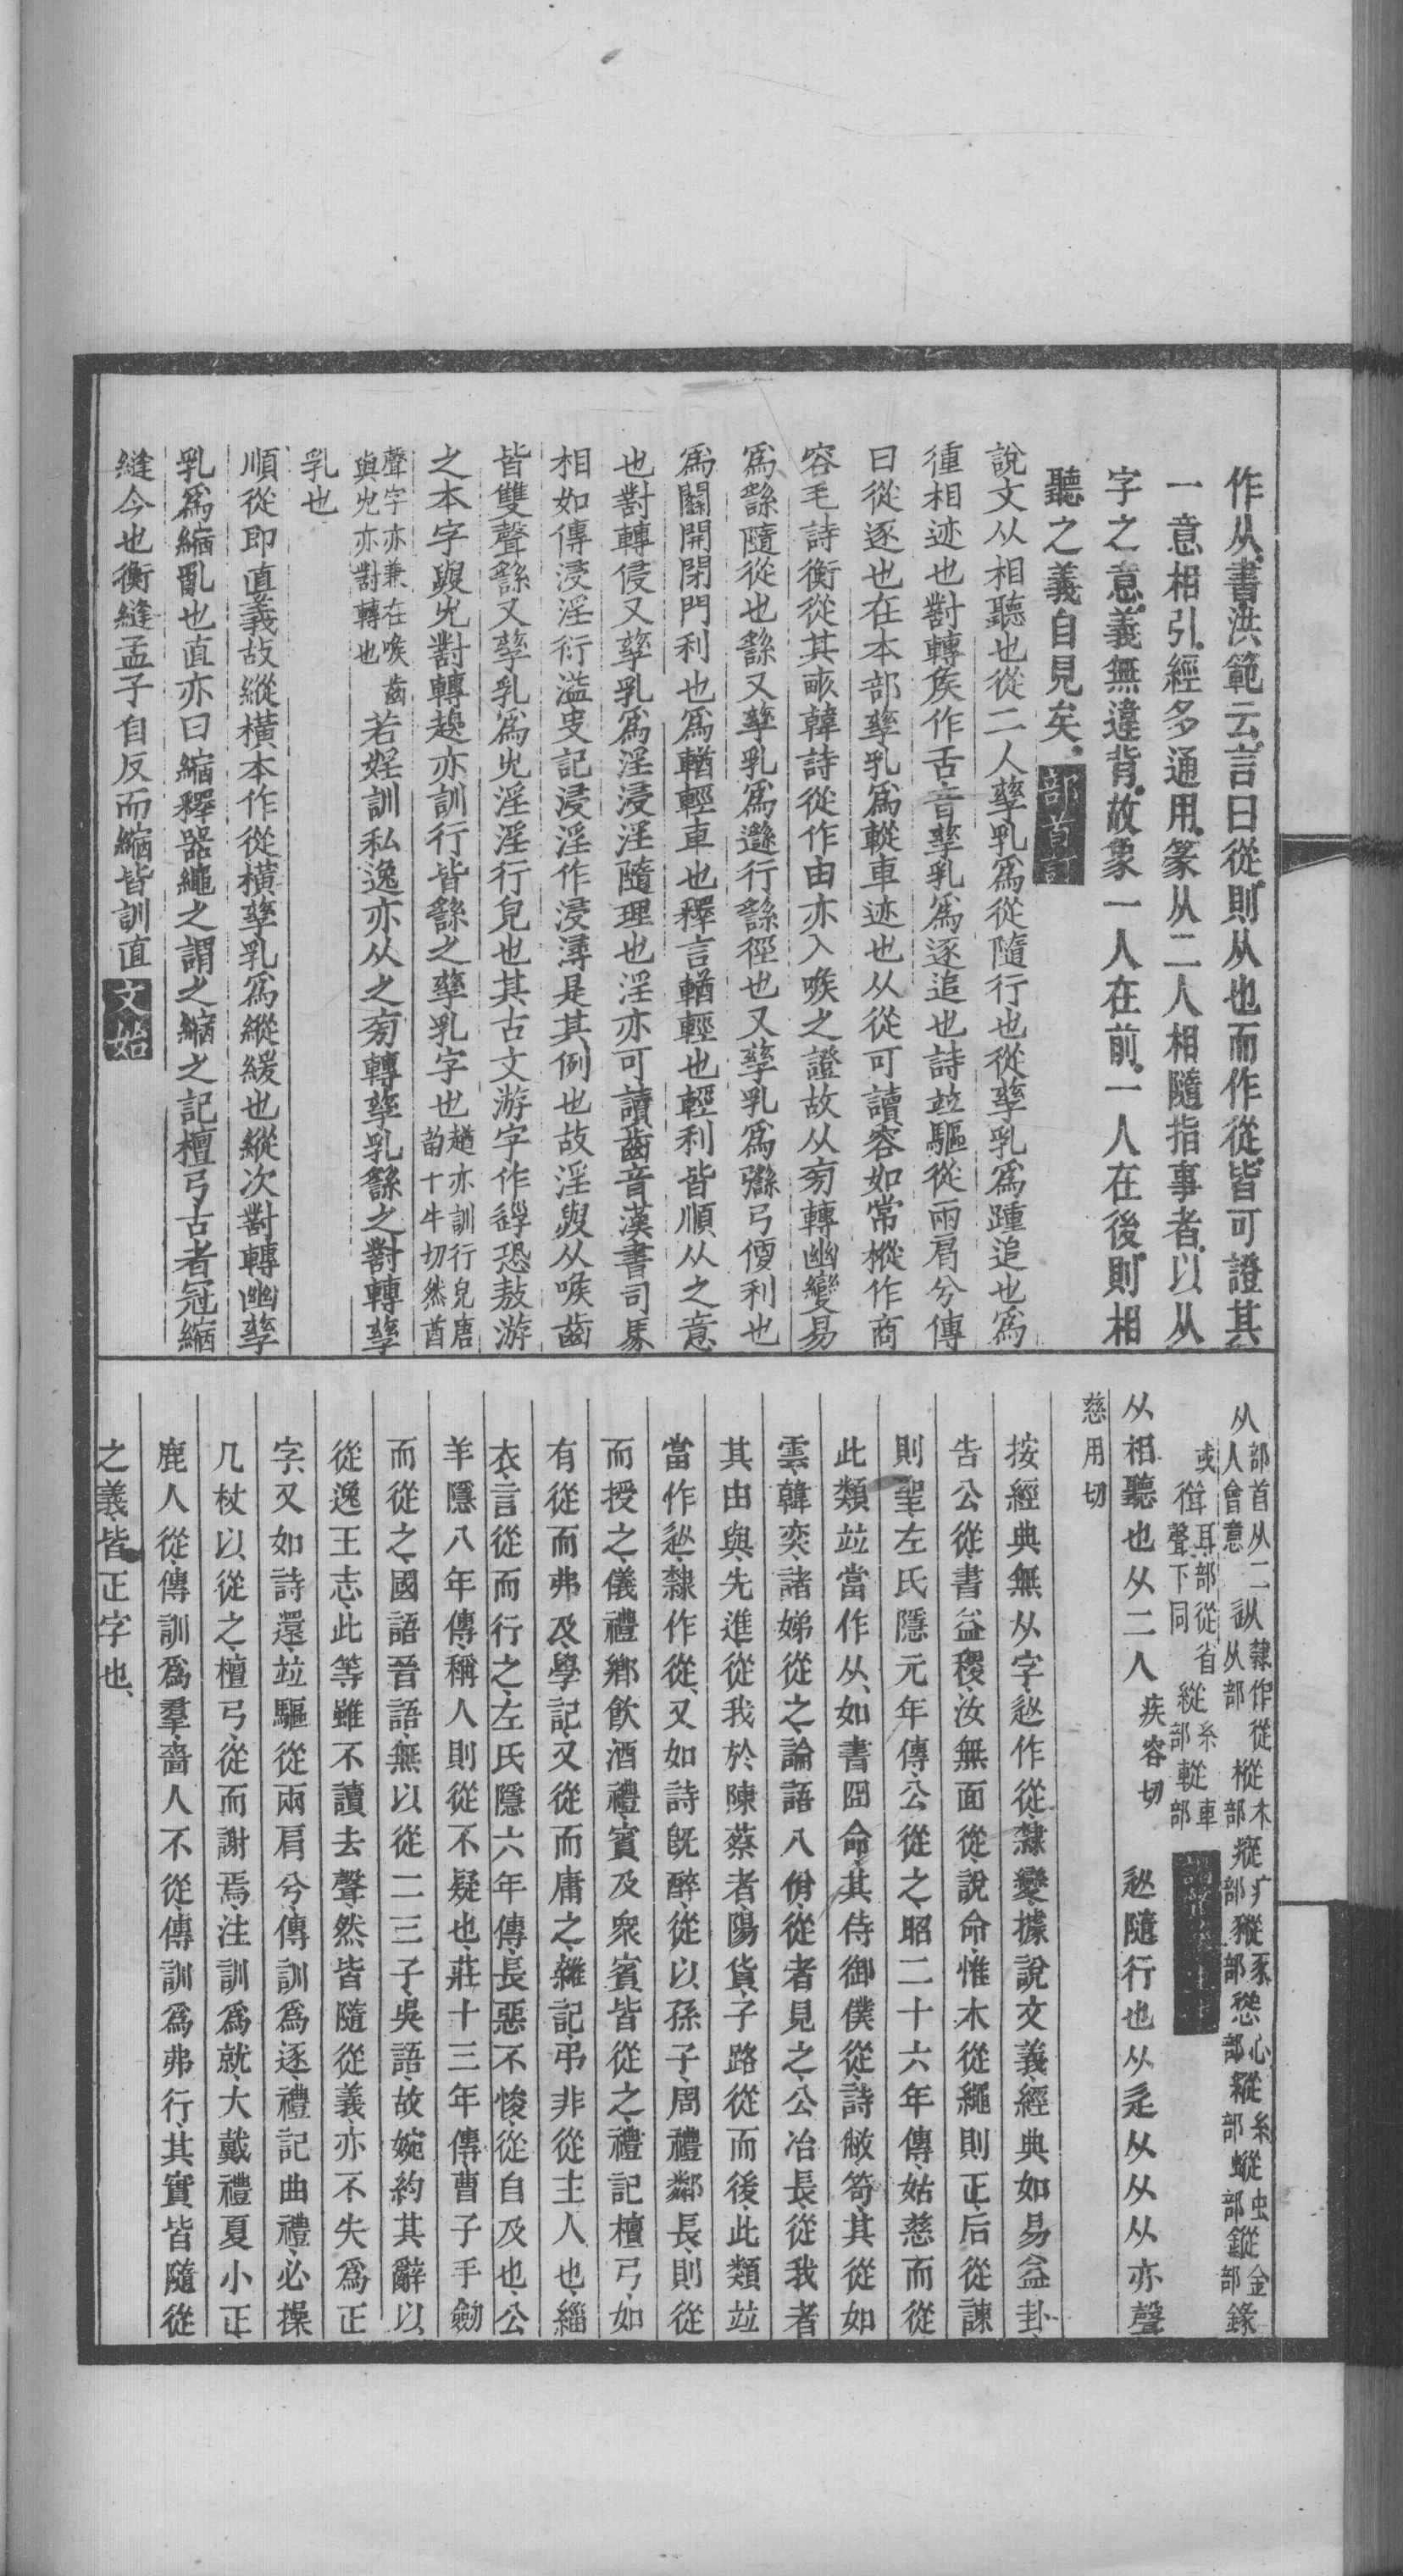 作从書洪範云言曰從則从也而作從皆可證其
一意相引經多通用篆从二人相隨指事者以从
字之意義無違背故象一人在前一人在後則相
聽之義自見矣 部首訂
說文从相聽也從二人孳乳爲從隨行也從孳乳爲踵追也爲
㣫相迹也對轉矦作舌音孳乳爲逐追也詩竝驅從兩肩兮傳
曰從逐也在本部孳乳爲䡮車迹也从從可讀容如常樅作商
容毛詩衡從其畝韓詩從作由亦入喉之證故从㫄轉幽變易
爲繇隨從也繇又孳乳爲䢊行繇徑也又孳乳爲㢥弓便利也
爲闗開閉門利也爲輶輕車也釋言輶輕也輕利皆順从之意
也對轉侵又孳乳爲淫浸淫隨理也淫亦可讀齒音漢書司馬
相如傳浸淫衍溢史記浸淫作浸潯是其例也故淫㕟从喉齒
皆雙聲繇又孳乳爲冘淫淫行皃也其古文游字作䢟恐敖游
之本字與冘對轉趍亦訓行皆繇之孳乳字也 趥亦訓行皃唐
韵十牛切然酋
聲字亦兼在喉齒
與冘亦對轉也 若婬訓私逸亦从之㫄轉孳乳繇之對轉孳
乳也
順從即直義故縱橫本作從橫孳乳爲縱緩也縱次對轉幽孳
乳爲縮亂也直亦曰縮釋器繩之謂之縮之記檀弓古者冠縮
縫今也衡縫孟子自反而縮皆訓直 文始
从 部首从二
人會意 從 隸作從
从部 樅 木
部 瘲 疒
部 豵 豕
部 慫 心
部 縱 糸
部 䗥 虫
部 鏦 金
部 錄
或 㒀 耳部從省
聲下同 縱 糸
部 䡮 車
部
从相聽也从二人 疾容切 從隨行也从辵从从从亦聲
慈用切
按經典無从字從作從隸變據說文義經典如易益卦
告公從書益稷汝無面從說命惟木從繩則正后從諫
則聖左氏隱元年傳公從之昭二十六年傳姑慈而從
此類竝當作从如書冏命其侍御僕從詩敝笱其從如
雲韓奕諸娣從之論語八佾從者見之公冶長從我者
其由與先進從我於陳蔡者陽貨子路從而後此類竝
當作從隸作從又如詩旣醉從以孫子周禮鄰長則從
而授之儀禮鄉飲酒禮賓及衆賓皆從之禮記檀弓如
有從而弗及學記又從而庸之雜記弔非從主人也緇
衣言從而行之左氏隱六年傳長惡不悛從自及也公
羊隱八年傳稱人則從不疑也莊十三年傳曹子手劒
而從之國語晉語無以從二三子吳語故婉約其辭以
從逸王志此等雖不讀去聲然皆隨從義亦不失爲正
字又如詩還竝驅從兩肩兮傳訓爲逐禮記曲禮必操
几杖以從之檀弓從而謝焉注訓爲就大戴禮夏小正
鹿人從傳訓爲羣嗇人不從傳訓爲弗行其實皆隨從
之義皆正字也